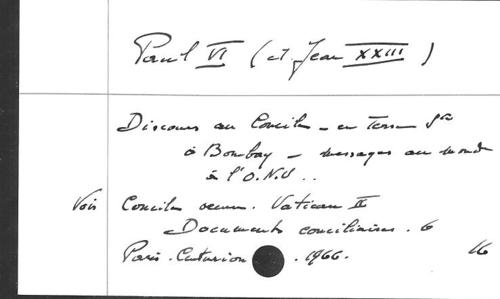 Paul VI (et Jean XXIII)
Discours au Concile – en Terre Ste
à Bombay – messages au monde
à l'O.N.U..
Vois Concile oecum. Vatican II
Documents conciliaires. 6
Paris. Centurion . 1966.